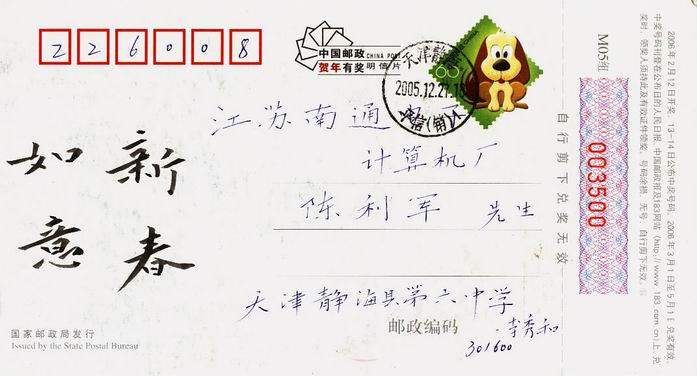 226008
中国邮政 CHINA POST
贺年有奖 明信片
2005.12.27.15
江苏南通
计算机厂
陈利军 先生
新春
如意
天津静海县第六中学
李秀和
邮政编码
301600
国家邮政局发行
Issued by the State Postal Bureau
自行剪下兑奖无效
M05组
003500
2006年2月12日开奖,13-14日公布中奖号码。2006年3月1日至5月1日兑奖有效。
中奖号码刊登在公布日的人民日报、中国邮政报及183网站(http://www.183.com.cn)上,兑
奖时,领奖人须持此及有效证件领奖,号码涂损,无号,自行剪下无效。